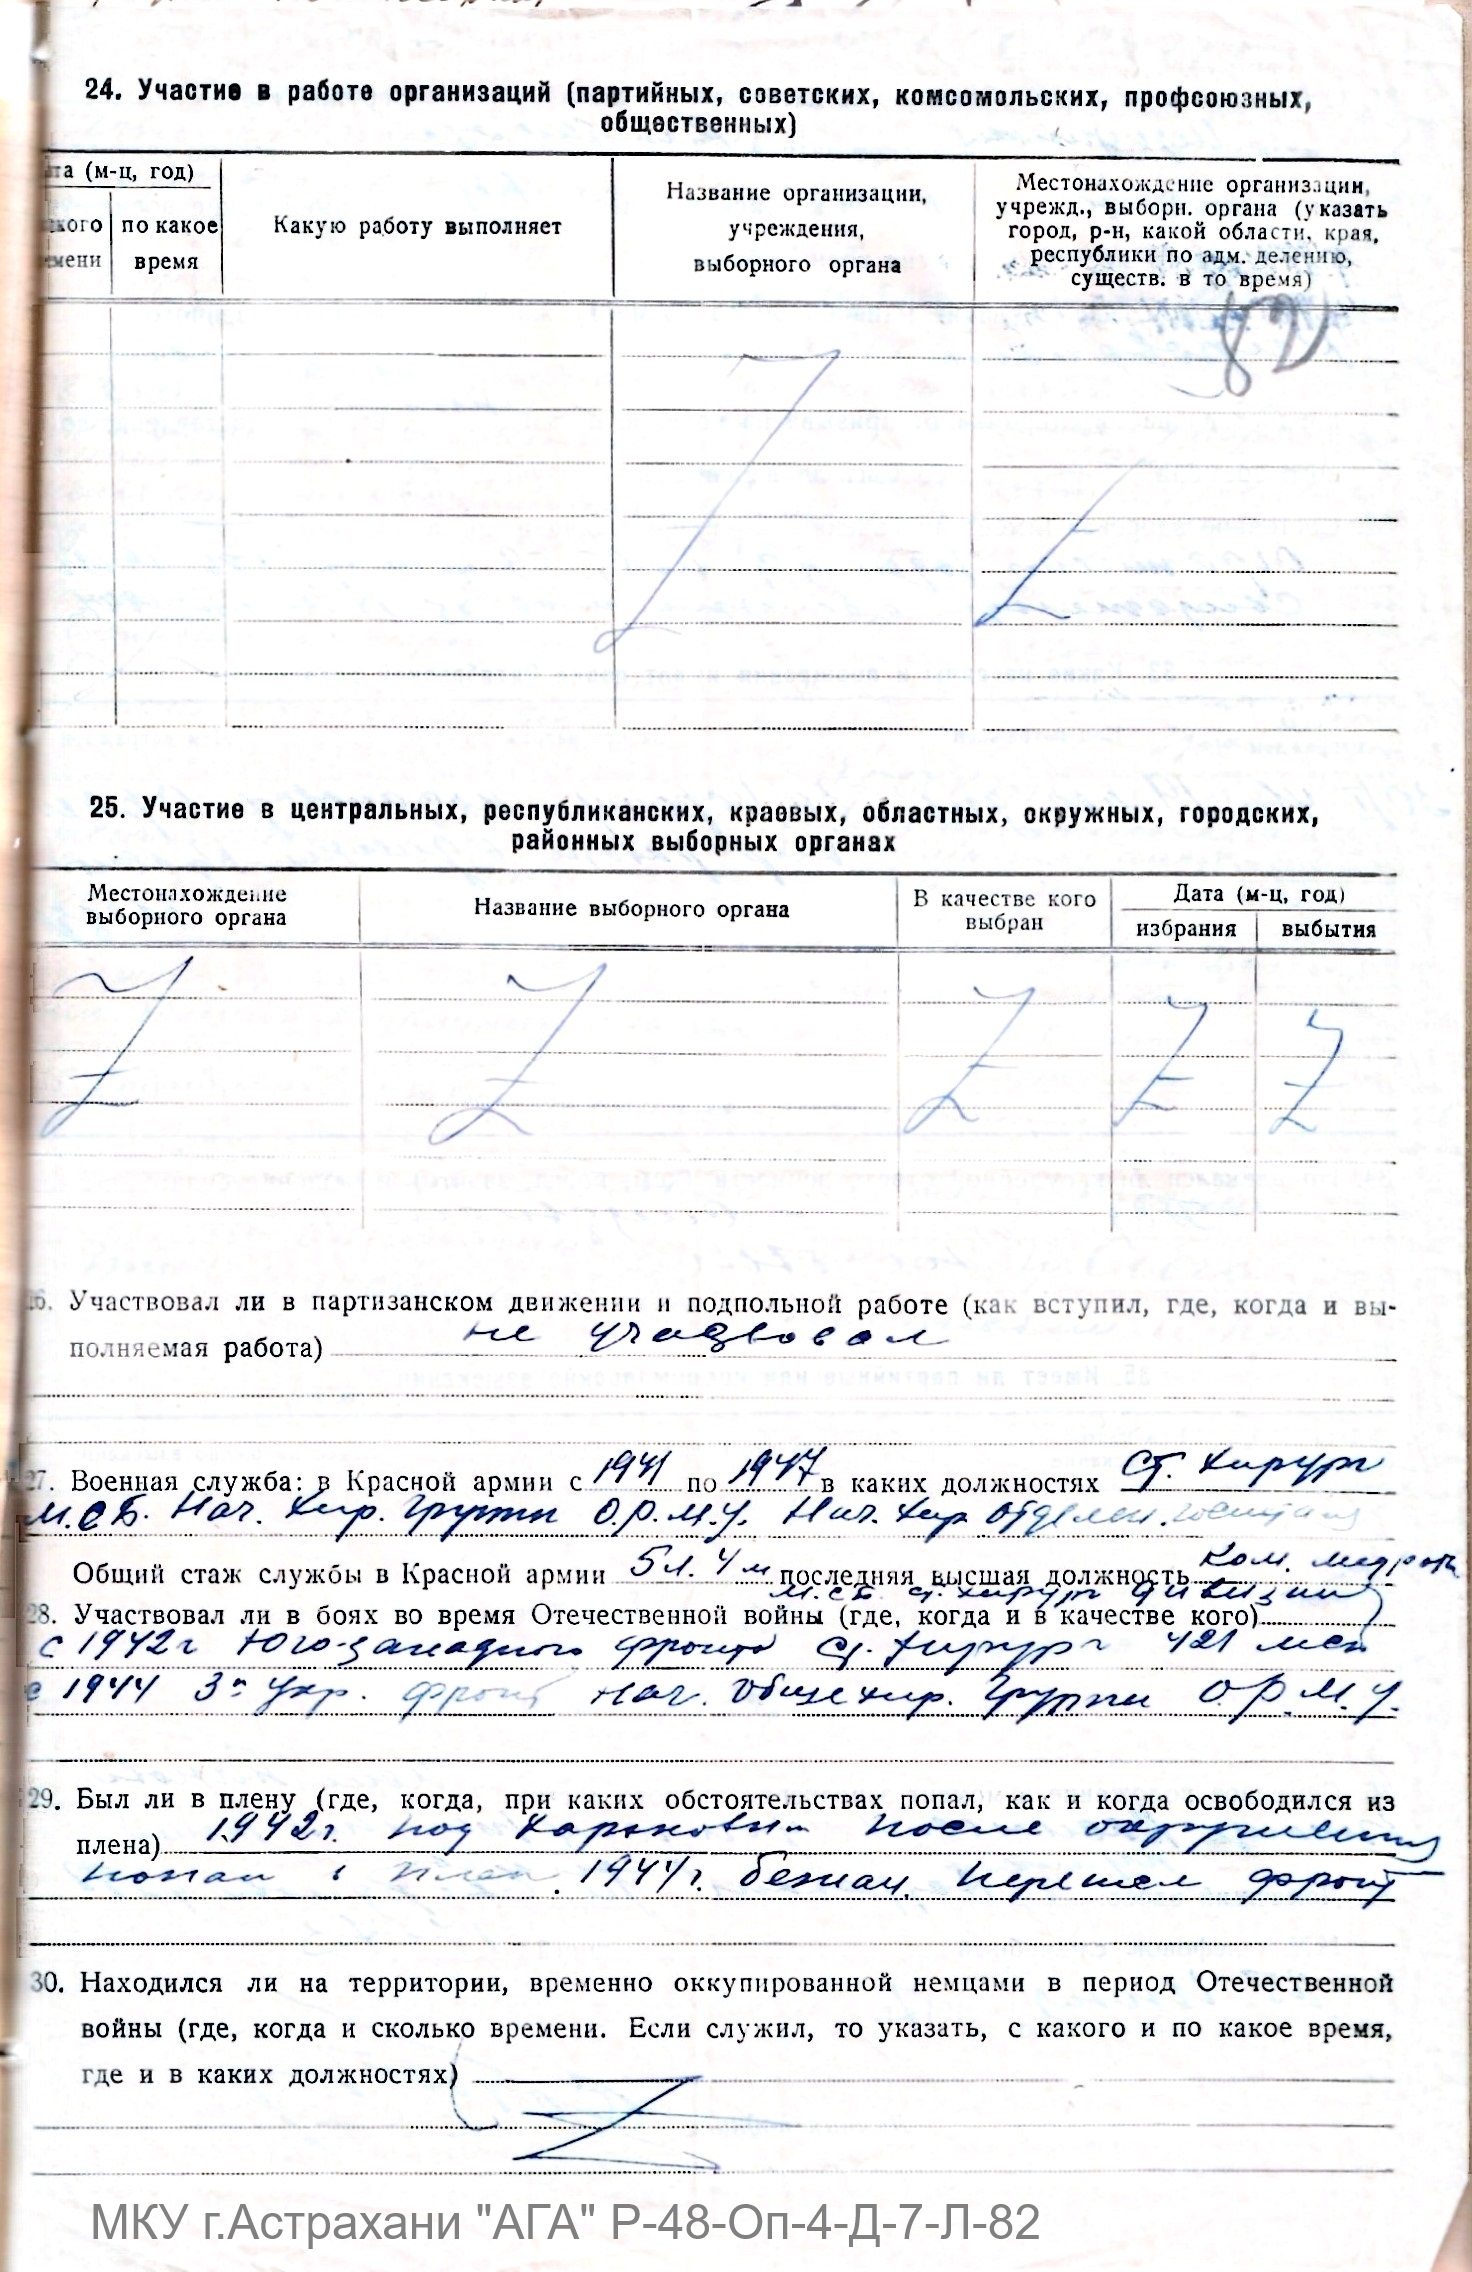 24. Участие в работе организаций (партийных, советских, комсомольских, профсоюзных,
общественных)
та (м-ц, год)
кого
мени
по какое
время
Какую работу выполняет
Название организации,
учреждения,
выборного органа
Местонахождение организации,
учрежд., выборн. органа (указать
город, р-н, какой области, края,
республики по адм. делению,
существ. в то время)
82
25. Участие в центральных, республиканских, краевых, областных, окружных, городских,
районных выборных органах
Местонахождение
выборного органа
Название выборного органа
В качестве кого
выбран
Дата (м-ц, год)
избрания
выбытия
26. Участвовал ли в партизанском движении и подпольной работе (как вступил, где, когда и вы-
полняемая работа) не участвовал
27. Военная служба: в Красной армии с 1941 по 1947 в каких должностях Ст. хирург
М.С.Б. Нач. хир. группы О.Р.М.У. Нач. хир отделен. госпиталя
Общий стаж службы в Красной армии 5 л. 4 м последняя высшая должность Ком. медроты
М.С.Б. ст. хирург дивизии
28. Участвовал ли в боях во время Отечественной войны (где, когда и в качестве кого)
с 1942 г Юго-западного фронта Ст. хирург 421 мсб
с 1944 3й Укр. фронт нач. общехир. группы О.Р.М.У.
29. Был ли в плену (где, когда, при каких обстоятельствах попал, как и когда освободился из
плена) 1942 г. под Харьковым после окружения
попал в плен. 1944 г. бежал, перешел фронт
30. Находился ли на территории, временно оккупированной немцами в период Отечественной
войны (где, когда и сколько времени. Если служил, то указать, с какого и по какое время,
где и в каких должностях)
МКУ г.Астрахани "АГА" Р-48-Оп-4-Д-7-Л-82